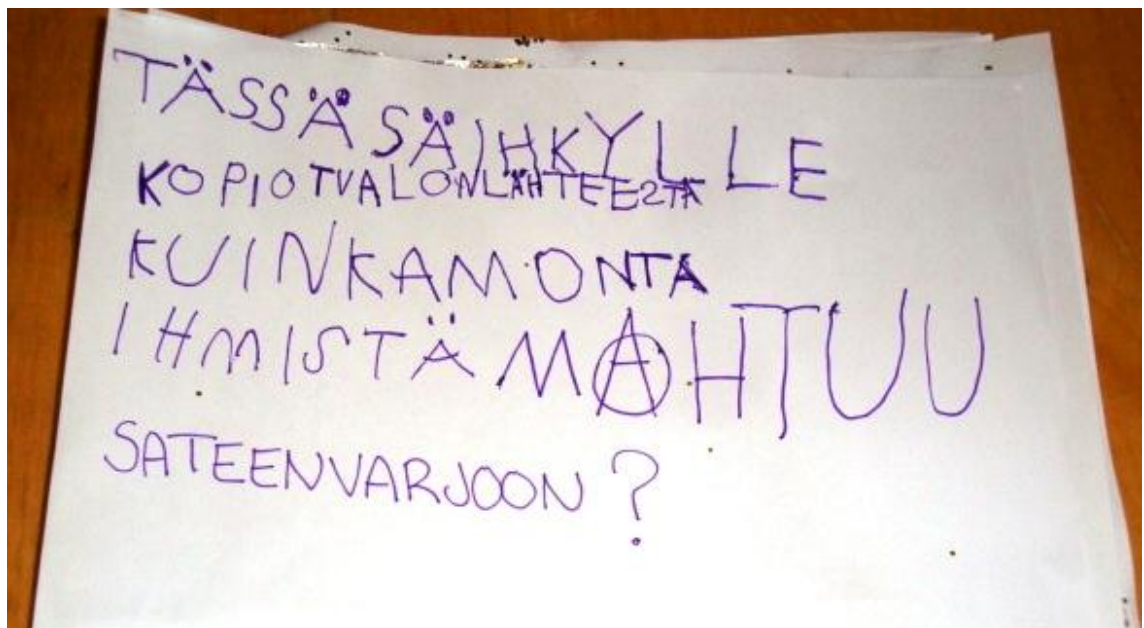 TÄSSÄ SÄIHKYLLE
KOPIOT VALONLÄHTEESTÄ
KUINKA MONTA
IHMISTÄ MAHTUU
SATEENVARJOON?